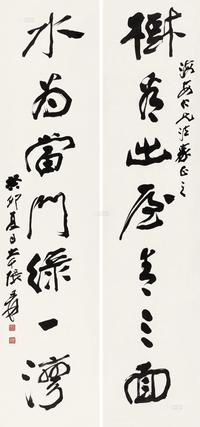 樹出屋青三面
仁兄法家正之
水為當門綠一灣
癸卯夏日大千張爰